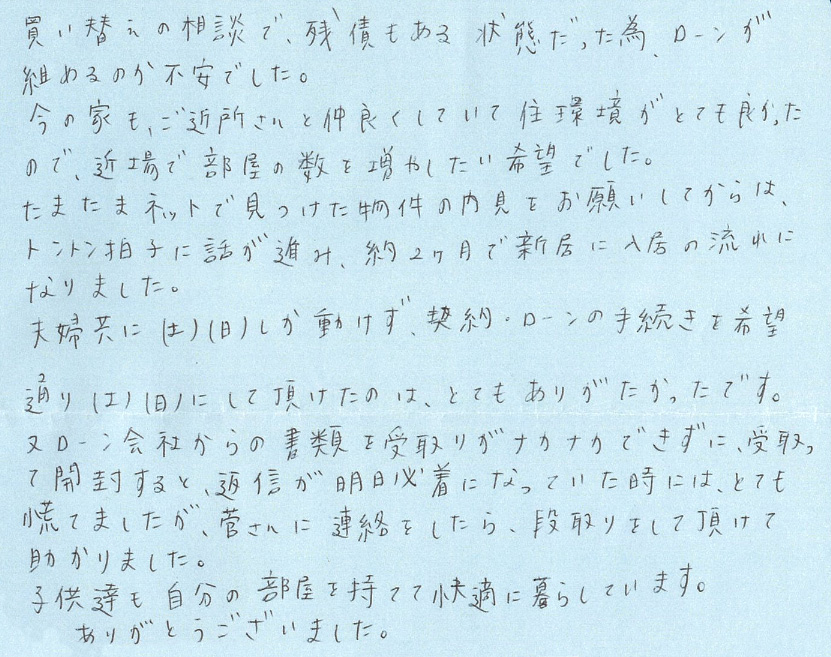 買い替えの相談で、残債もある状態だった為、ローンが
組めるのか不安でした。
今の家も、ご近所さんと仲良くしていて住環境がとても良かった
ので、近場で部屋の数を増やしたい希望でした。
たまたまネットで見つけた物件の内見をお願いしてからは、
トントン拍子に話が進み、約2ヶ月で新居に入居の流れに
なりました。
夫婦共に(土)(日)しか動けず、契約・ローンの手続きを希望
通り(土)(日)にして頂けたのは、とてもありがたかったです。
又ローン会社からの書類を受取りがナカナカできずに、受取っ
て開封すると、返信が明日必着になっていた時には、とても
慌てましたが、菅さんに連絡をしたら、段取りをして頂けて
助かりました。
子供達も自分の部屋を持てて快適に暮らしています。
ありがとうございました。